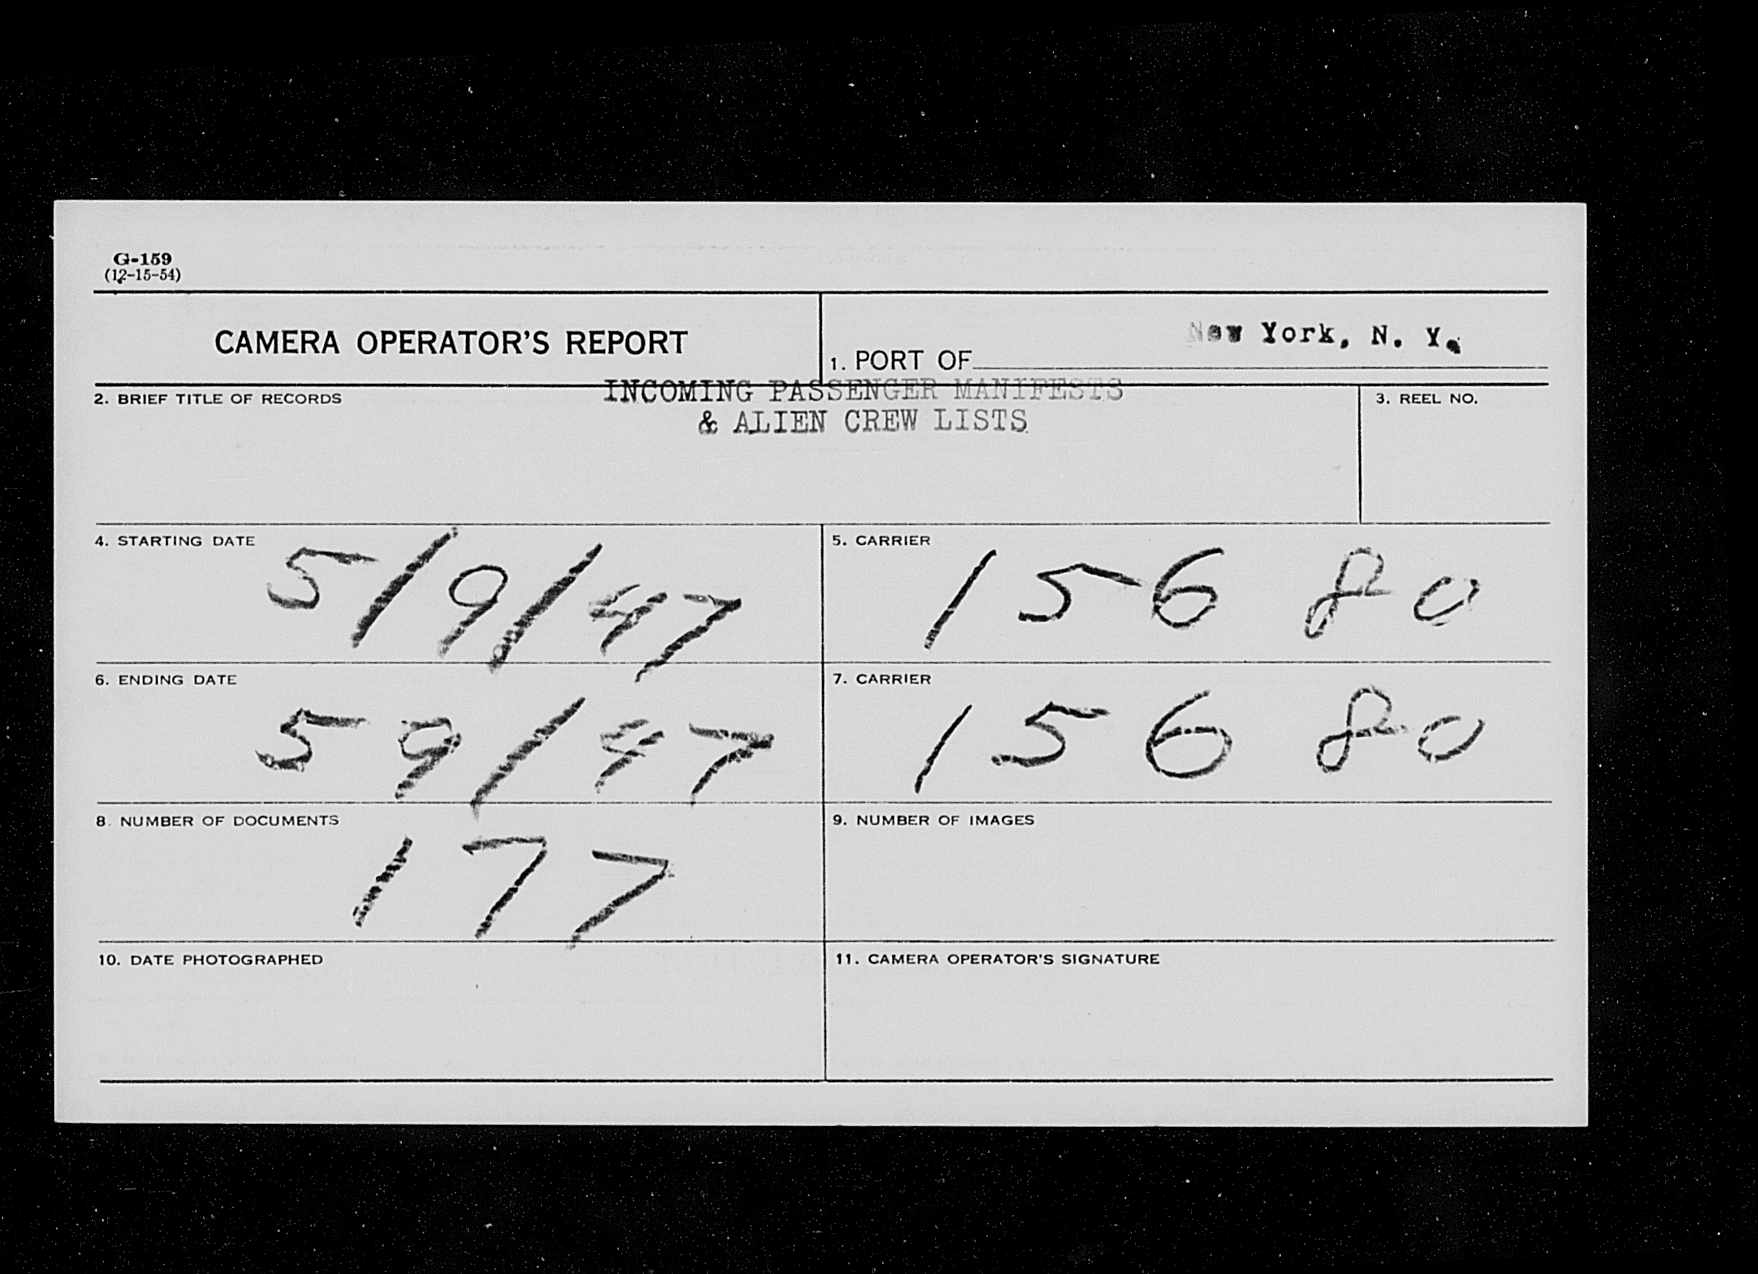 G-159
(12-15-54)
CAMERA OPERATOR'S REPORT
1. PORT OF New York, N. Y.
2. BRIEF TITLE OF RECORDS
INCOMING PASSENGER MANIFESTS
& ALIEN CREW LISTS
3. REEL NO.
4. STARTING DATE 5/9/47
5. CARRIER 156 80
6. ENDING DATE 59/47
7. CARRIER 156 80
8. NUMBER OF DOCUMENTS 177
9. NUMBER OF IMAGES
10. DATE PHOTOGRAPHED
11. CAMERA OPERATOR'S SIGNATURE